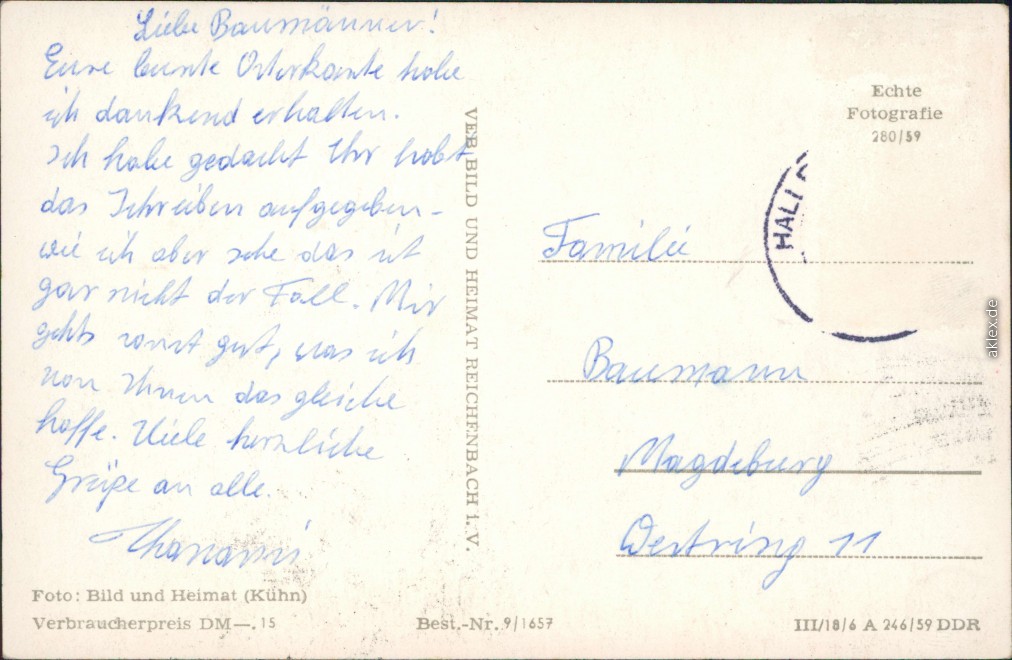 Liebe Baumänner!
Eure bunte Osterkarte habe
ich dankend erhalten.
Ich habe gedacht Ihr habt
das Schreiben aufgegeben -
wie ich aber sehe das ist
gar nicht der Fall. Mir
gehts sonst gut, was ich
von Ihnen das gleiche
hoffe. Viele herzliche
Grüße an alle.
VEB BILD UND HEIMAT REICHENBACH i. V.
Echte
Fotografie
280/59
HALL
Familie
Baumann
Magdeburg
Westring 11
Foto: Bild und Heimat (Kühn)
Verbraucherpreis DM—.15
Best.-Nr. 9/1657
III/18/6 A 246/59 DDR
aklex.de